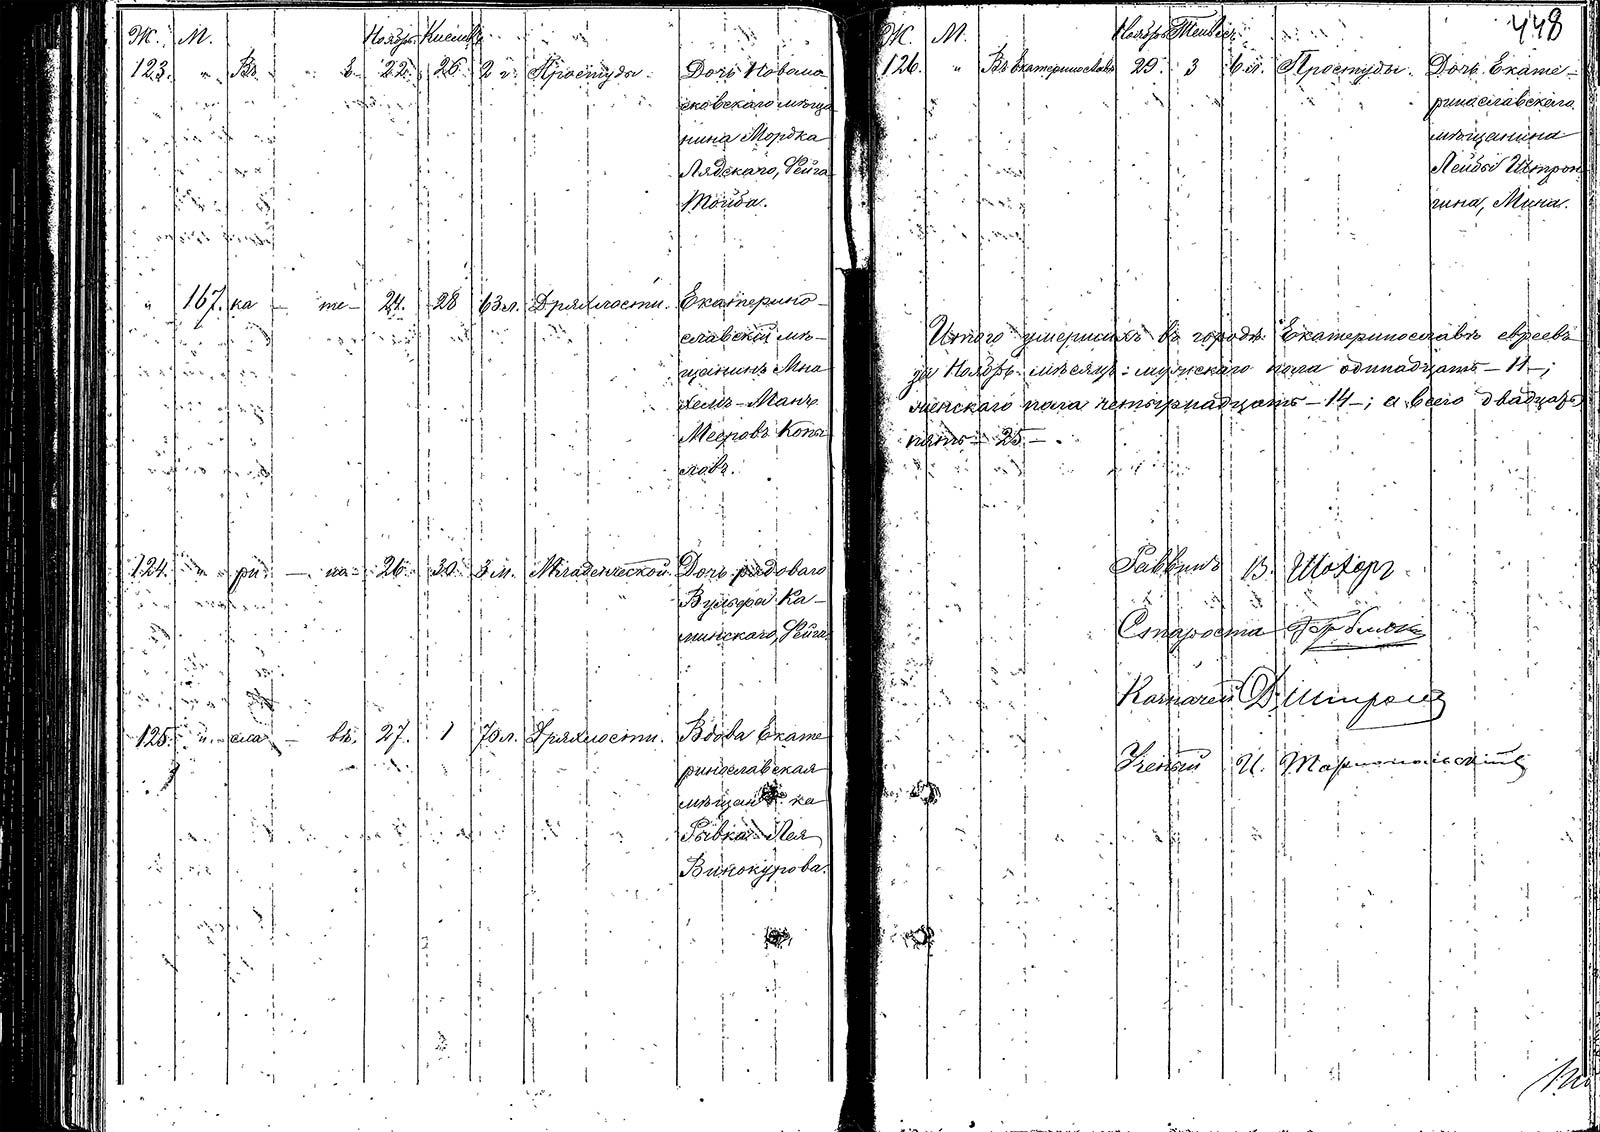 Ж. М. Ноябрь Кислевъ
123. " Въ Е- 22. 26 2 г. Простуды. Дочь Новомо-
сковскаго мѣща-
нина Мордка
Лядскаго, Фейга
Тойба.
" 167. ка - те- 24. 28 63 л. Дряхлости. Екатерино-
славскій мѣ-
щанинъ Мна-
хемъ-Манъ
Мееровъ Копы-
ловъ.
124. " ри - но- 26. 30 3 м. Младенческой. Дочь рядоваго
Вульфа Ка-
минскаго, Фейга.
125. " сла - вѣ. 27. 1 70 л. Дряхлости. Вдова Екате-
ринославская
мѣщанка
Рывка-Лея
Винокурова.
448
Ж. М. Ноябрь Тейвесъ
126. " Въ Екатеринославѣ 29. 3 6 л. Простуды. Дочь Екате-
ринославскаго
мѣщанина
Лейбы Штрон-
гина, Мина.
Итого умершихъ въ городѣ Екатеринославѣ евреевъ
за Ноябрь мѣсяцъ: мужскаго пола одинадцать - 11 -;
женскаго пола четырнадцать - 14 -; а всего двадцать
пять - 25 -.
Раввинъ В. Шахоръ
Староста
Казначей Д.
Ученый И. Тарнопольскій